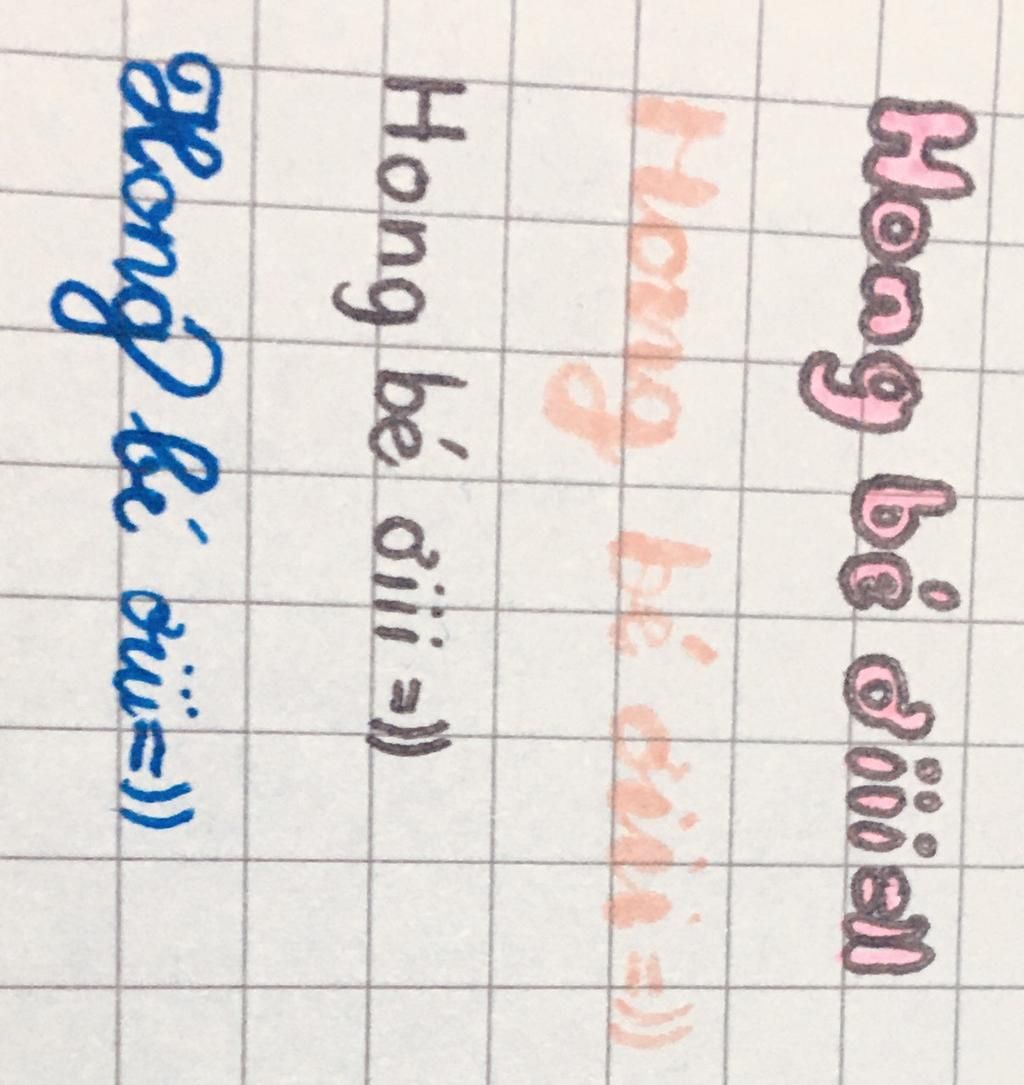 Hong bé ơiii =))
Hong bé ơiii =))
Hong bé ơiii =))
Hong bé ơiii =))